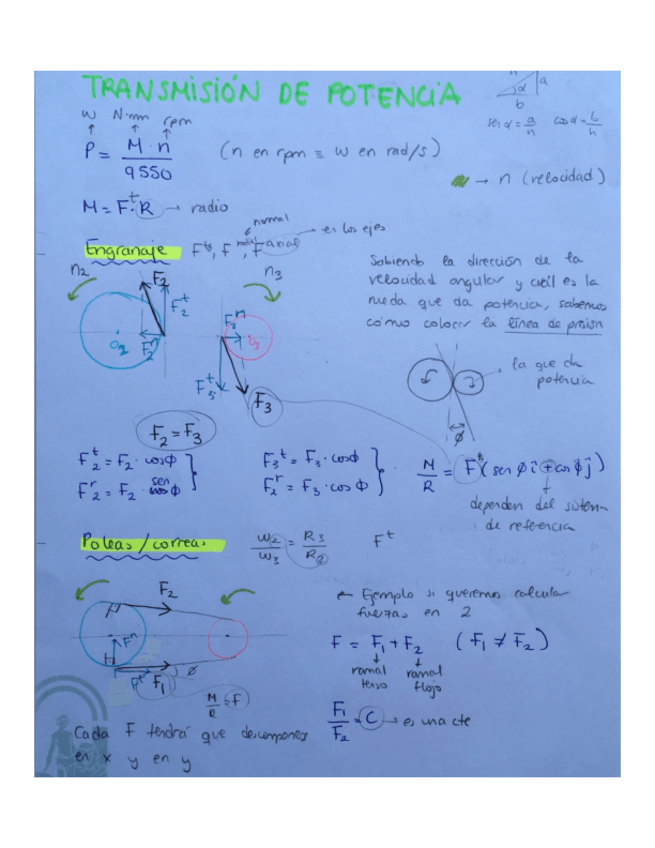 TRANSMISIÓN DE POTENCIA
a
α
b
sen α = a/h cos α = b/h
W N·mm rpm
P = M · n / 9550
(n en rpm = w en rad/s)
→ n (velocidad)
M = F^t · R → radio
normal
Engranaje F^t, F^radial, F^axial → en los ejes
n2
n3
F2
F2^t
F2^n
o2
F3^n
o3
F3^t
F3
Sabiendo la dirección de la
velocidad angular y cuál es la
rueda que da potencia, sabemos
cómo colocar la línea de presión
la que da
potencia
ϕ
F2 = F3
F2^t = F2 · cos ϕ
F2^r = F2 · sen ϕ
F3^t = F3 · cos ϕ
F2^r = F3 · cos ϕ
M/R = F^t (sen ϕ î + cos ϕ ĵ)
dependen del sistema
de referencia
Poleas/correas
w2/w3 = R3/R2
F^t
F2
F^n
F^t
F1
ϕ
M/R = F
← Ejemplo si queremos calcular
fuerzas en 2
F = F1 + F2 (F1 ≠ F2)
ramal tenso
ramal flojo
F1/F2 = C → es una cte
Cada F tendrá que descomponerse
en x y en y